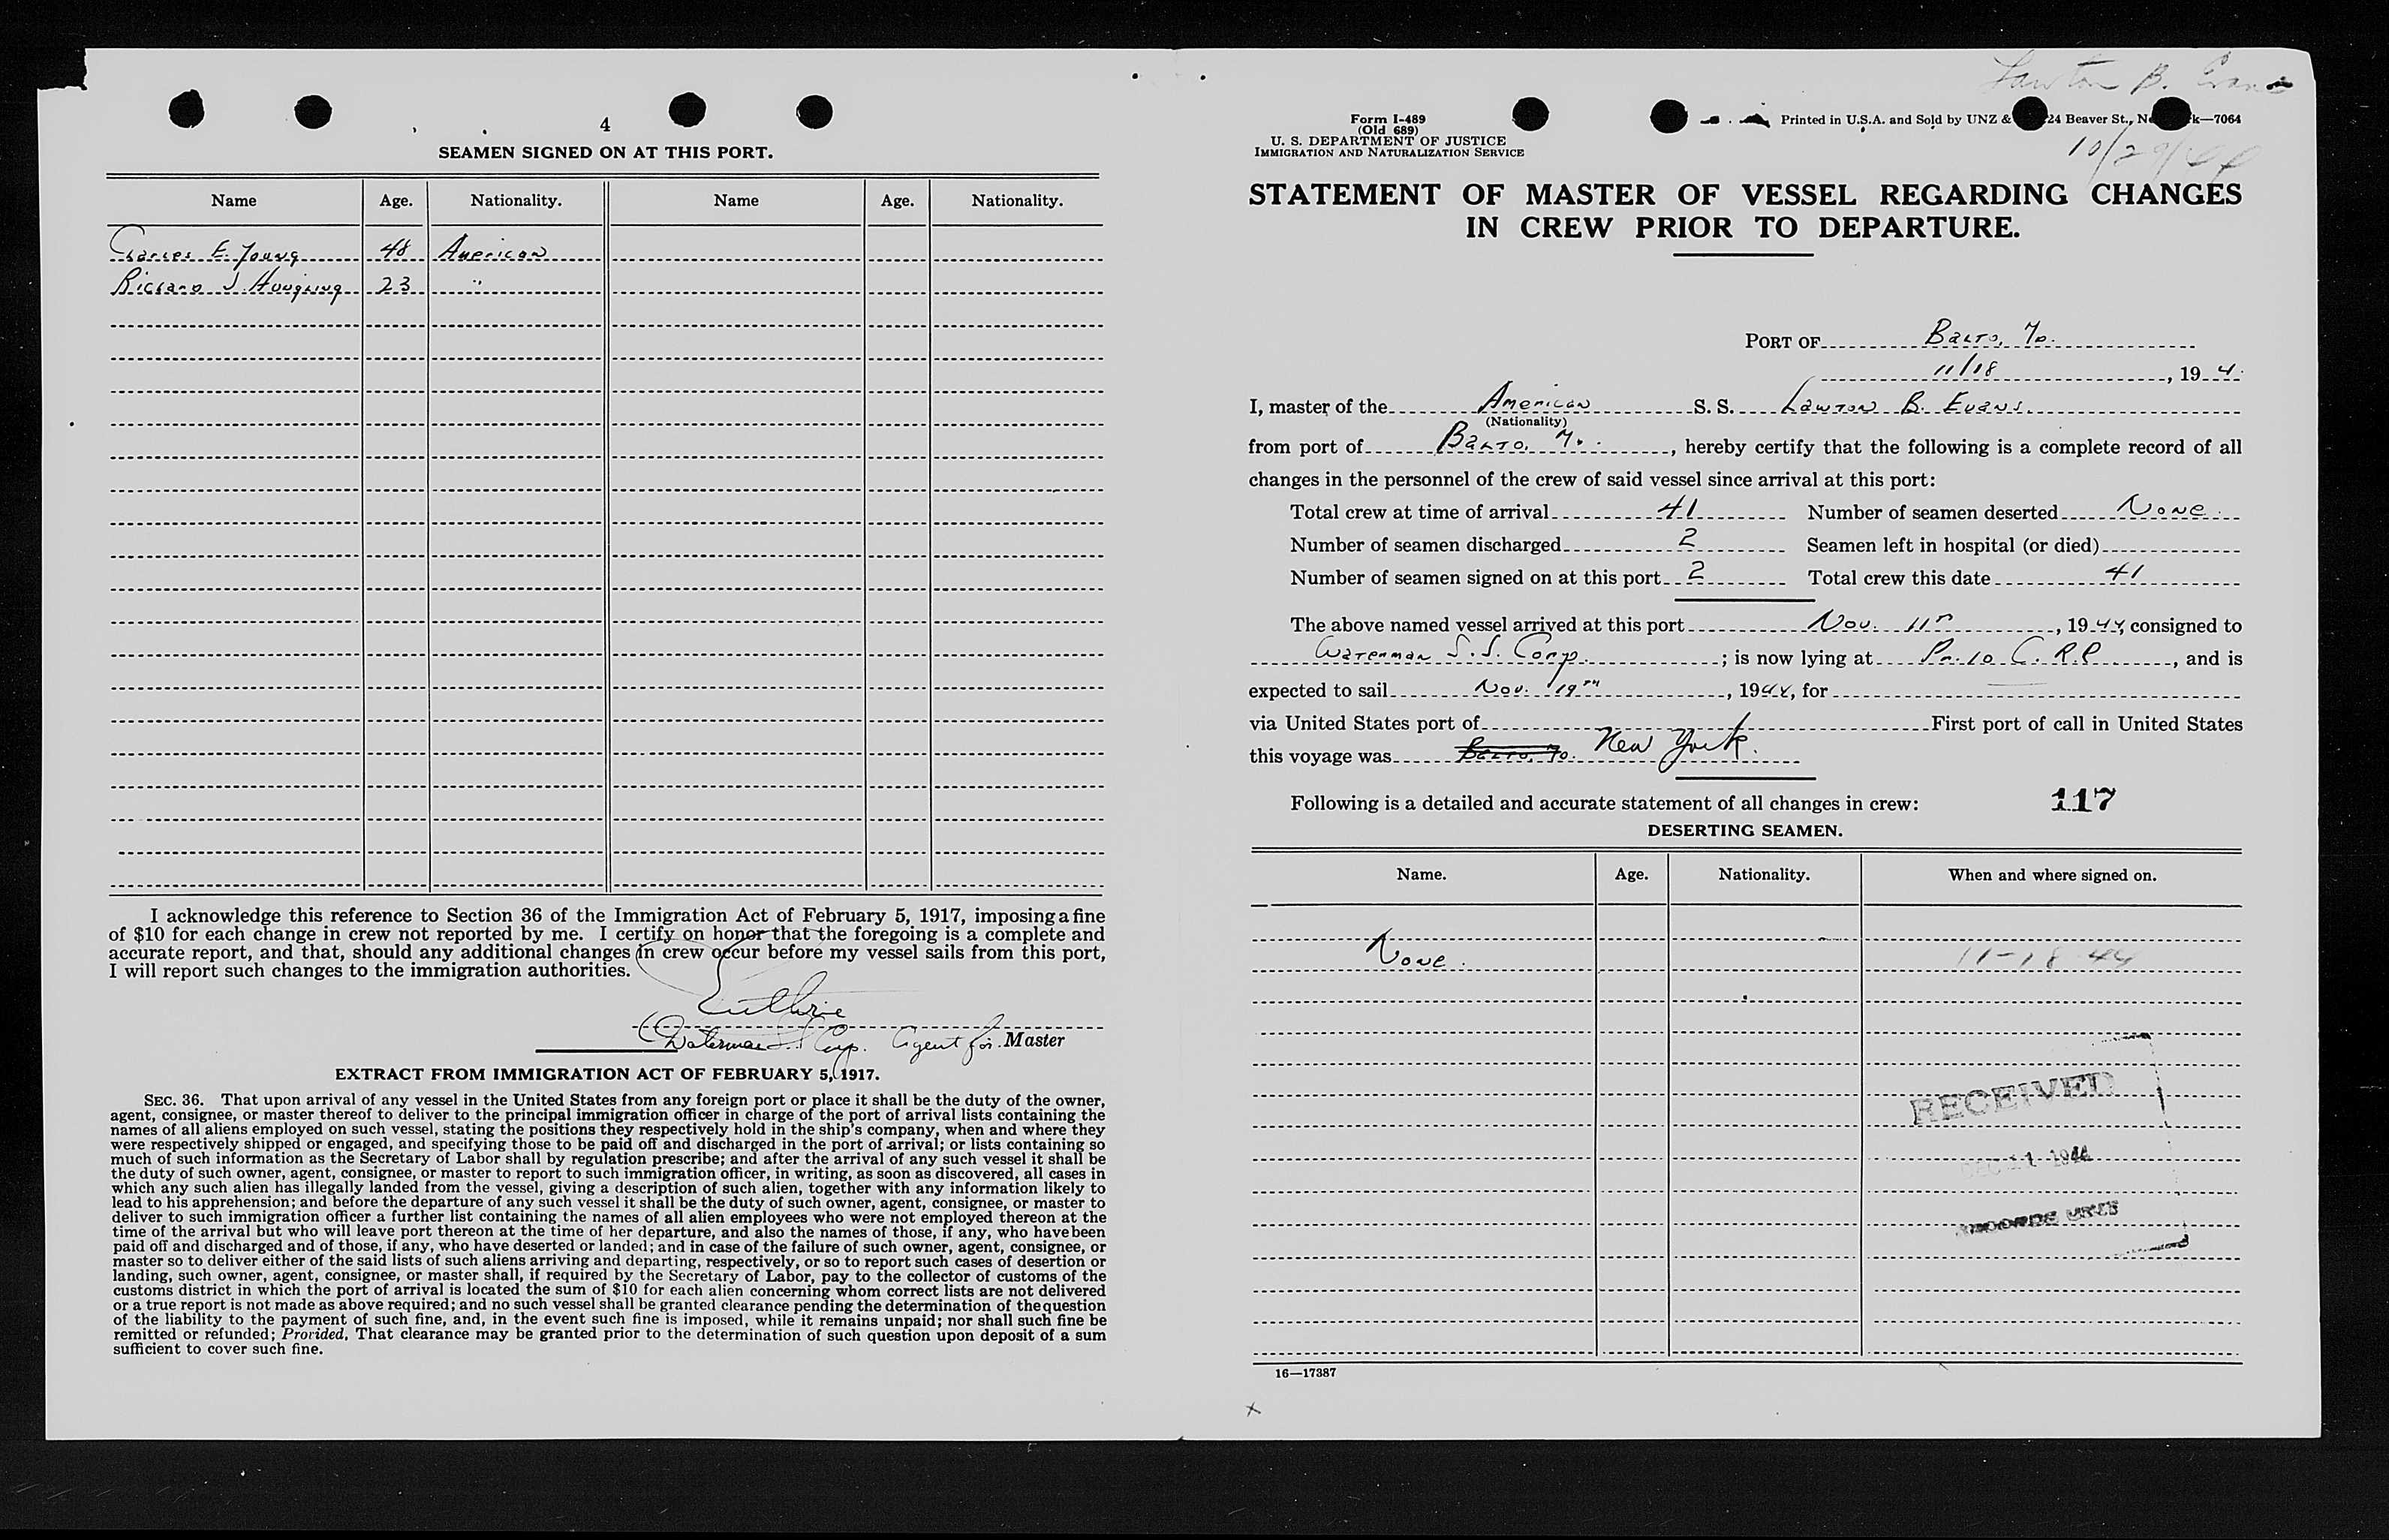 4
SEAMEN SIGNED ON AT THIS PORT.
Name Age. Nationality. Name Age. Nationality.
Charles E. Young 48 American
Richard J. 23 "
I acknowledge this reference to Section 36 of the Immigration Act of February 5, 1917, imposing a fine
of $10 for each change in crew not reported by me. I certify on honor that the foregoing is a complete and
accurate report, and that, should any additional changes in crew occur before my vessel sails from this port,
I will report such changes to the immigration authorities.
Guthrie
Waterman S.S. Corp. Agent for Master
EXTRACT FROM IMMIGRATION ACT OF FEBRUARY 5, 1917.
SEC. 36. That upon arrival of any vessel in the United States from any foreign port or place it shall be the duty of the owner,
agent, consignee, or master thereof to deliver to the principal immigration officer in charge of the port of arrival lists containing the
names of all aliens employed on such vessel, stating the positions they respectively hold in the ship's company, when and where they
were respectively shipped or engaged, and specifying those to be paid off and discharged in the port of arrival; or lists containing so
much of such information as the Secretary of Labor shall by regulation prescribe; and after the arrival of any such vessel it shall be
the duty of such owner, agent, consignee, or master to report to such immigration officer, in writing, as soon as discovered, all cases in
which any such alien has illegally landed from the vessel, giving a description of such alien, together with any information likely to
lead to his apprehension; and before the departure of any such vessel it shall be the duty of such owner, agent, consignee, or master to
deliver to such immigration officer a further list containing the names of all alien employees who were not employed thereon at the
time of the arrival but who will leave port thereon at the time of her departure, and also the names of those, if any, who have been
paid off and discharged and of those, if any, who have deserted or landed; and in case of the failure of such owner, agent, consignee, or
master so to deliver either of the said lists of such aliens arriving and departing, respectively, or so to report such cases of desertion or
landing, such owner, agent, consignee, or master shall, if required by the Secretary of Labor, pay to the collector of customs of the
customs district in which the port of arrival is located the sum of $10 for each alien concerning whom correct lists are not delivered
or a true report is not made as above required; and no such vessel shall be granted clearance pending the determination of the question
of the liability to the payment of such fine, and, in the event such fine is imposed, while it remains unpaid; nor shall such fine be
remitted or refunded; Provided, That clearance may be granted prior to the determination of such question upon deposit of a sum
sufficient to cover such fine.
Lawton B. Evans
Form I-489
(Old 689)
U. S. DEPARTMENT OF JUSTICE
IMMIGRATION AND NATURALIZATION SERVICE
Printed in U.S.A. and Sold by UNZ & 24 Beaver St., —7064
10/29/44
STATEMENT OF MASTER OF VESSEL REGARDING CHANGES
IN CREW PRIOR TO DEPARTURE.
PORT OF Balto, Md.
11/18, 19 4
I, master of the American S. S. Lawton B. Evans.
(Nationality)
from port of Balto. Md., hereby certify that the following is a complete record of all
changes in the personnel of the crew of said vessel since arrival at this port:
Total crew at time of arrival 41 Number of seamen deserted None.
Number of seamen discharged 2 Seamen left in hospital (or died)
Number of seamen signed on at this port 2 Total crew this date 41
The above named vessel arrived at this port Nov. 11th, 1944, consigned to
Waterman S.S. Corp.; is now lying at Pr. 10 C. R.P., and is
expected to sail Nov. 19th, 1944, for
via United States port of First port of call in United States
this voyage was Balto, Md. New York.
Following is a detailed and accurate statement of all changes in crew: 117
DESERTING SEAMEN.
Name. Age. Nationality. When and where signed on.
None. 11-18-44
RECEIVED
DEC 11 1944
16—17387